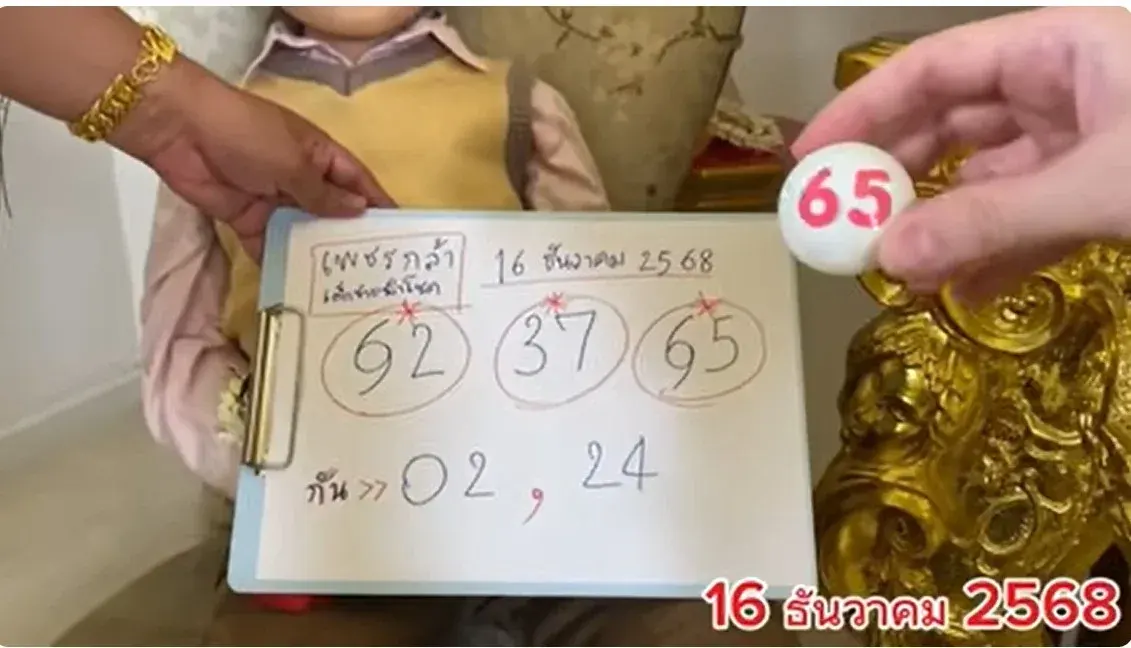 เพชรกล้า
16 ธันวาคม 2568
92 37 65
กัน >> 02 , 24
65
16 ธันวาคม 2568